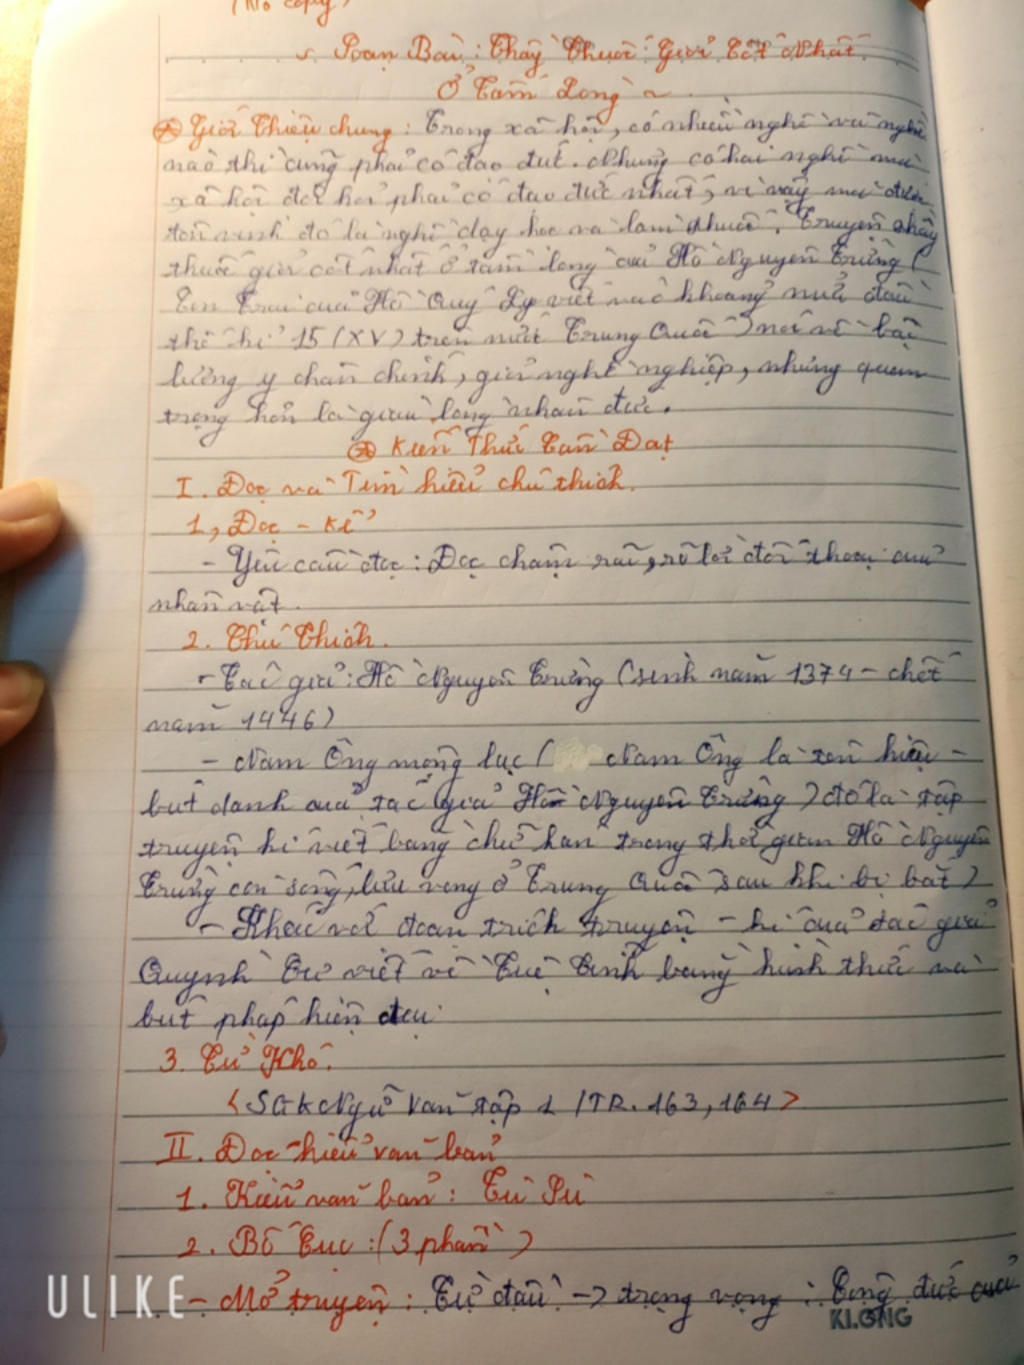 (No copy)
Soạn Bài: Thầy Thuốc Giỏi Cốt Nhất
Ở Tấm Lòng
Giới Thiệu chung: Trong xã hội, có nhiều nghề và nghề
nào thì cũng phải có đạo đức. Nhưng có hai nghề mà
xã hội đòi hỏi phải có đạo đức nhất, vì vậy mà được
tôn vinh đó là nghề dạy học và làm thuốc. Truyện thầy
thuốc giỏi cốt nhất ở tấm lòng của Hồ Nguyên Trừng (
Con Trai của Hồ Quý Ly viết vào khoảng nửa đầu
thế kỉ 15 (XV) trên nước Trung Quốc) nói về bậc
lương y chân chính, giỏi nghề nghiệp, nhưng quan
trọng hơn là giàu lòng nhân đức.
Kiến Thức Cần Đạt
I. Đọc và Tìm hiểu chú thích.
1, Đọc - kể
- Yêu cầu đọc: Đọc chậm rãi, rõ lời đối thoại của
nhân vật.
2. Chú Thích.
- Tác giả: Hồ Nguyên Trừng (sinh năm 1374 - chết
năm 1446)
- Nam Ông mộng lục ( Nam Ông là tên hiệu -
bút danh của tác giả Hồ Nguyên Trừng) đó là tập
truyện kí viết bằng chữ hán trong thời gian Hồ Nguyên
Trừng còn sống, lưu vong ở Trung Quốc sau khi bị bắt)
- Khác với đoạn trích truyện - kí của tác giả
Quỳnh Cư viết về Tuệ Tĩnh bằng hình thức và
bút pháp hiện đại
3. Từ Khó.
<SGK Ngữ Văn tập 1 / TR. 163, 164>
II. Đọc - hiểu văn bản
1. Kiểu văn bản: Tự Sự
2. Bố Cục: (3 phần)
- Mở truyện: Từ đầu -> trọng vọng: Công đức của
KLONG
ULIKE